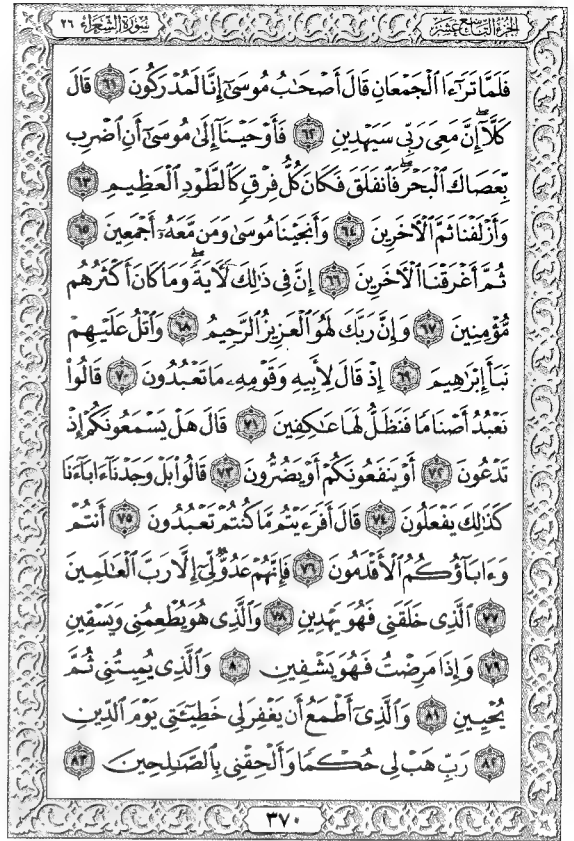 الجزء التاسع عشر
سورة الشعراء ٢٦
فَلَمَّا تَرَٰٓءَا ٱلۡجَمۡعَانِ قَالَ أَصۡحَٰبُ مُوسَىٰٓ إِنَّا لَمُدۡرَكُونَ ٦١ قَالَ
كَلَّآۖ إِنَّ مَعِيَ رَبِّي سَيَهۡدِينِ ٦٢ فَأَوۡحَيۡنَآ إِلَىٰ مُوسَىٰٓ أَنِ ٱضۡرِب
بِّعَصَاكَ ٱلۡبَحۡرَۖ فَٱنفَلَقَ فَكَانَ كُلُّ فِرۡقٖ كَٱلطَّوۡدِ ٱلۡعَظِيمِ ٦٣
وَأَزۡلَفۡنَا ثَمَّ ٱلۡأٓخَرِينَ ٦٤ وَأَنجَيۡنَا مُوسَىٰ وَمَن مَّعَهُۥٓ أَجۡمَعِينَ ٦٥
ثُمَّ أَغۡرَقۡنَا ٱلۡأٓخَرِينَ ٦٦ إِنَّ فِي ذَٰلِكَ لَأٓيَةٗۖ وَمَا كَانَ أَكۡثَرُهُم
مُّؤۡمِنِينَ ٦٧ وَإِنَّ رَبَّكَ لَهُوَ ٱلۡعَزِيزُ ٱلرَّحِيمُ ٦٨ وَٱتۡلُ عَلَيۡهِمۡ
نَبَأَ إِبۡرَٰهِيمَ ٦٩ إِذۡ قَالَ لِأَبِيهِ وَقَوۡمِهِۦ مَا تَعۡبُدُونَ ٧٠ قَالُواْ
نَعۡبُدُ أَصۡنَامٗا فَنَظَلُّ لَهَا عَٰكِفِينَ ٧١ قَالَ هَلۡ يَسۡمَعُونَكُمۡ إِذۡ
تَدۡعُونَ ٧٢ أَوۡ يَنفَعُونَكُمۡ أَوۡ يَضُرُّونَ ٧٣ قَالُواْ بَلۡ وَجَدۡنَآ ءَابَآءَنَا
كَذَٰلِكَ يَفۡعَلُونَ ٧٤ قَالَ أَفَرَءَيۡتُم مَّا كُنتُمۡ تَعۡبُدُونَ ٧٥ أَنتُمۡ
وَءَابَآؤُكُمُ ٱلۡأَقۡدَمُونَ ٧٦ فَإِنَّهُمۡ عَدُوّٞ لِّيٓ إِلَّا رَبَّ ٱلۡعَٰلَمِينَ
٧٧ ٱلَّذِي خَلَقَنِي فَهُوَ يَهۡدِينِ ٧٨ وَٱلَّذِي هُوَ يُطۡعِمُنِي وَيَسۡقِينِ
٧٩ وَإِذَا مَرِضۡتُ فَهُوَ يَشۡفِينِ ٨٠ وَٱلَّذِي يُمِيتُنِي ثُمَّ
يُحۡيِينِ ٨١ وَٱلَّذِيٓ أَطۡمَعُ أَن يَغۡفِرَ لِي خَطِيٓـَٔتِي يَوۡمَ ٱلدِّينِ
٨٢ رَبِّ هَبۡ لِي حُكۡمٗا وَأَلۡحِقۡنِي بِٱلصَّٰلِحِينَ ٨٣
٣٧٠